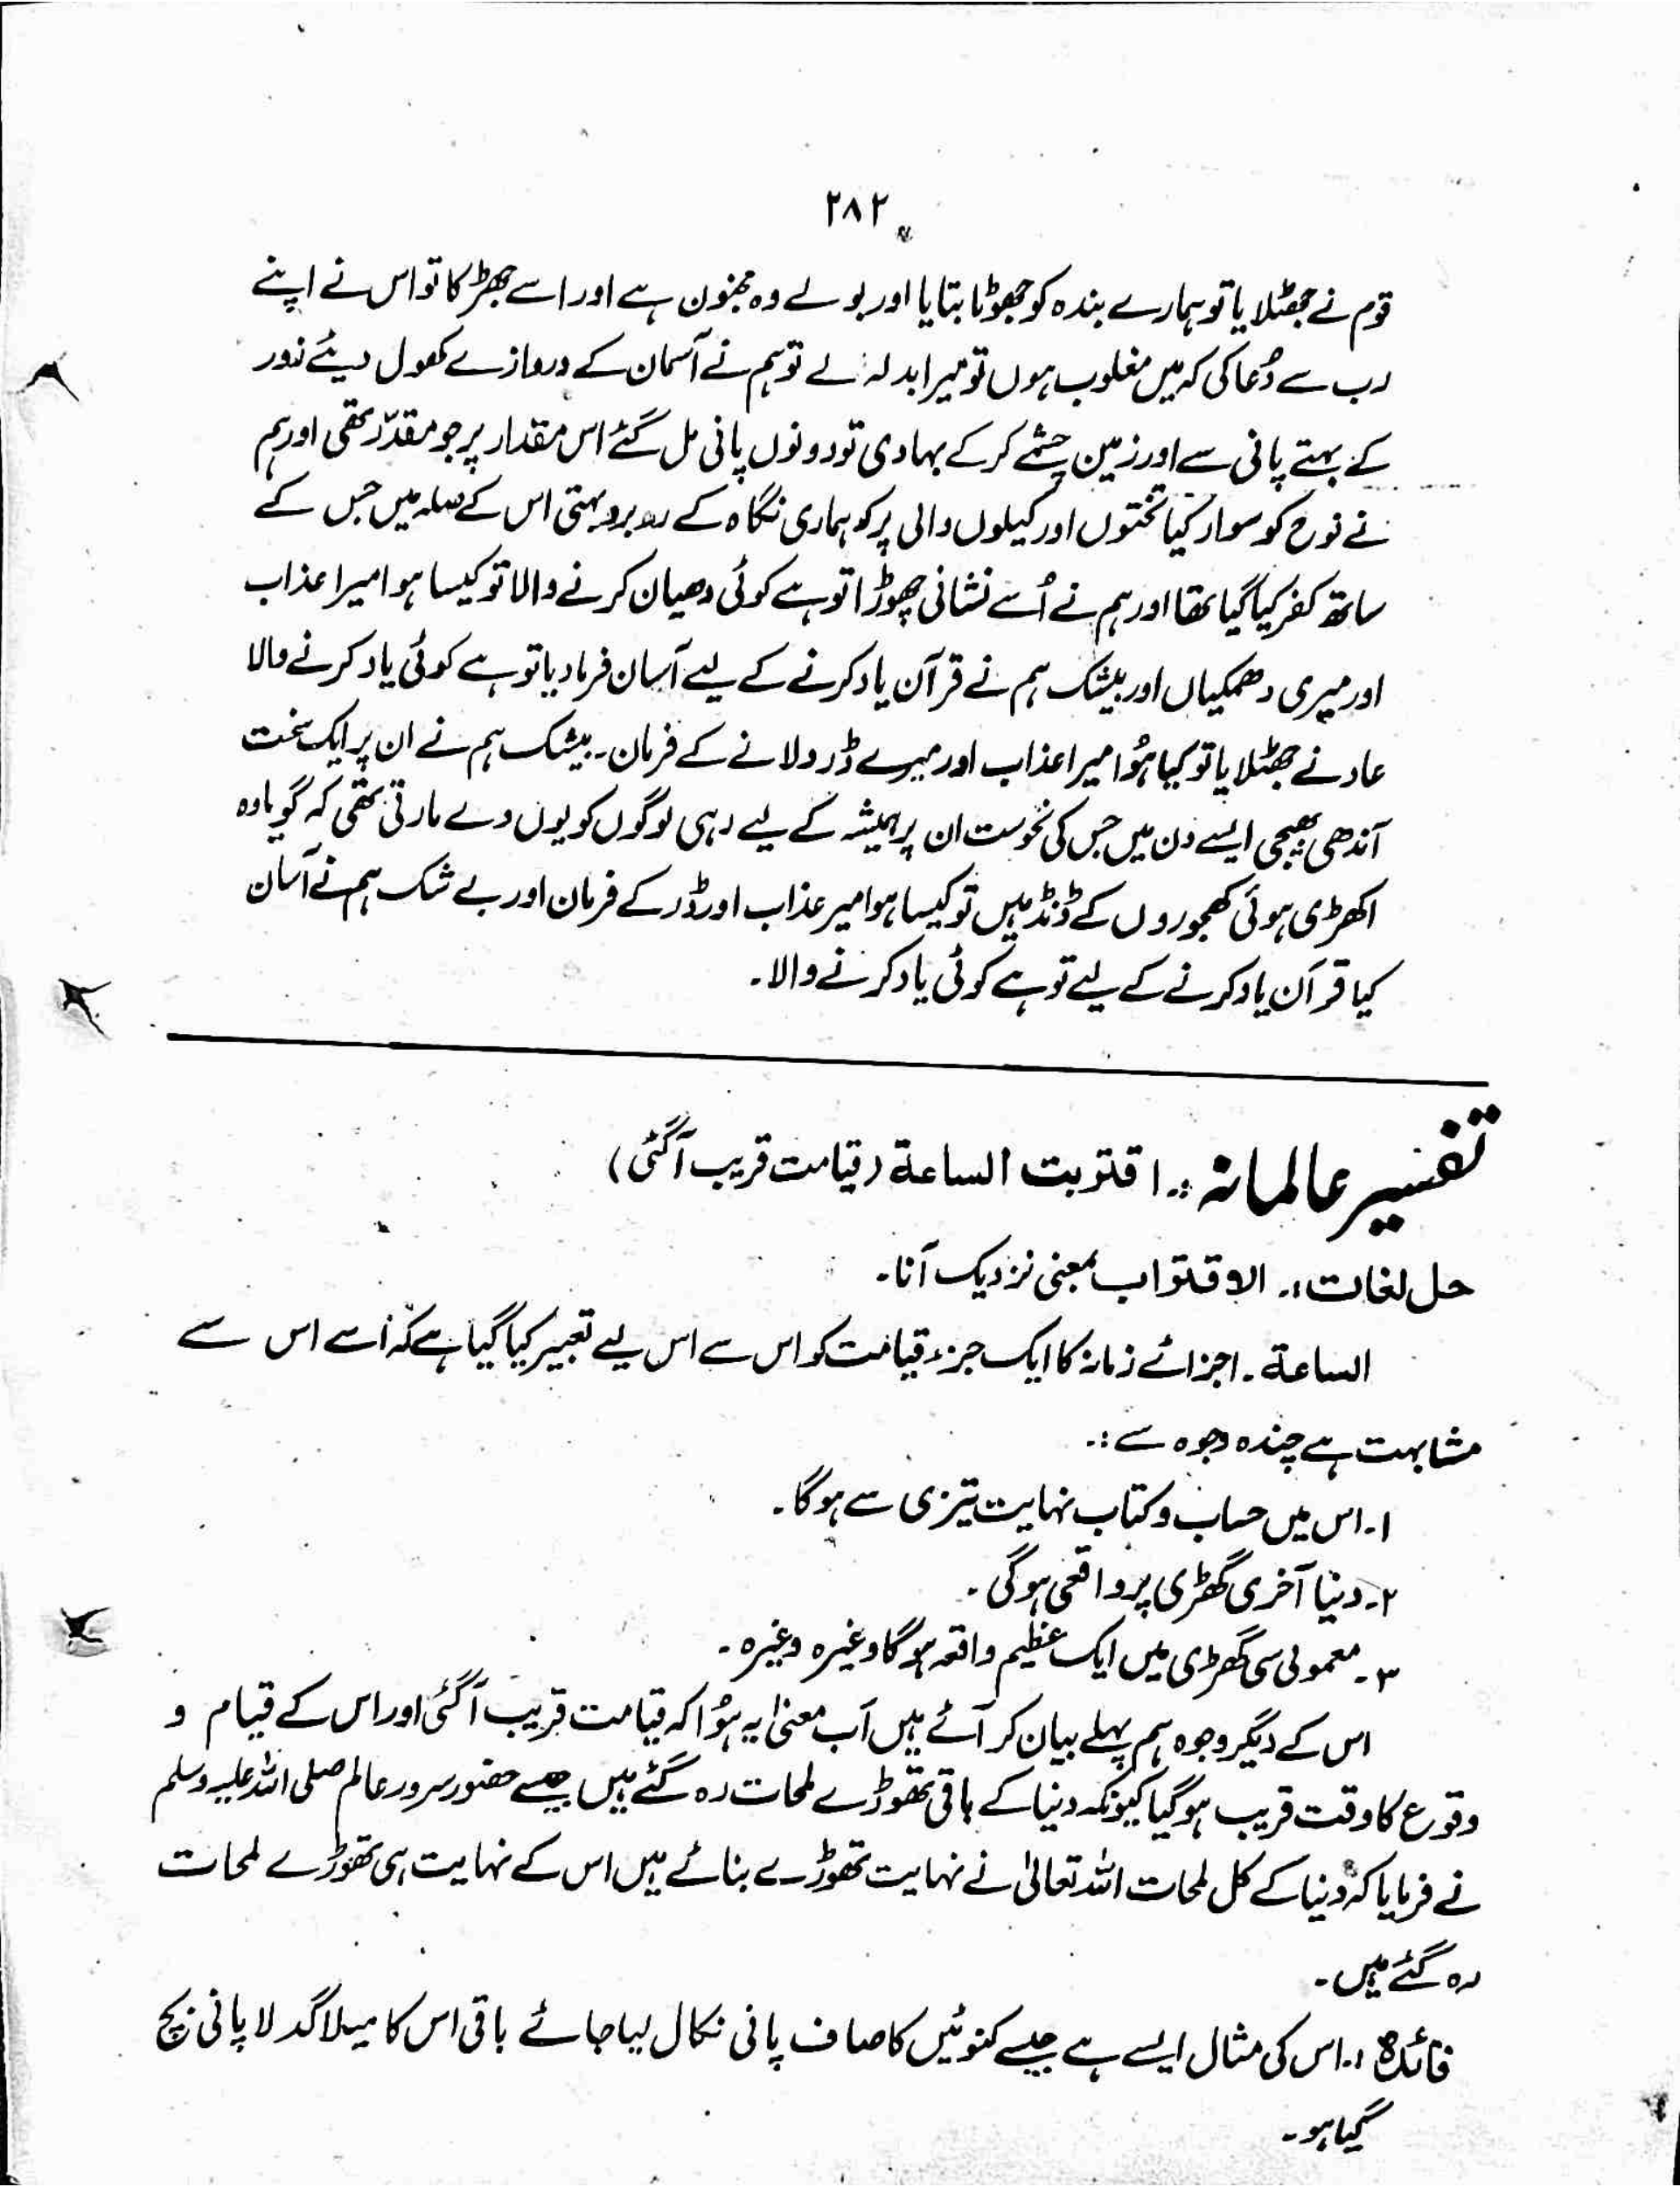 ۲۸۲
قوم نے جھٹلایا تو ہمارے بندہ کو جھوٹا بتایا اور بولے وہ مجنون ہے اور اسے جھڑکا تو اس نے اپنے
رب سے دُعا کی کہ میں مغلوب ہوں تو میرا بدلہ لے تو ہم نے آسمان کے دروازے کھول دیئے زور
کے بہتے پانی سے اور زمین چشمے کر کے بہادی تو دونوں پانی مل گئے اس مقدار پر جو مقدّر تھی اور ہم
نے نوح کو سوار کیا تختوں اور کیلوں والی پر کہ ہماری نگاہ کے روبرو بہتی اس کے صلہ میں جس کے
ساتھ کفر کیا گیا تھا اور ہم نے اُسے نشانی چھوڑا تو ہے کوئی دھیان کرنے والا تو کیسا ہوا میرا عذاب
اور میری دھمکیاں اور بیشک ہم نے قرآن یاد کرنے کے لیے آسان فرما دیا تو ہے کوئی یاد کرنے والا
عاد نے جھٹلایا تو کیا ہُوا میرا عذاب اور میرے ڈر دلانے کے فرمان۔ بیشک ہم نے ان پر ایک سخت
آندھی بھیجی ایسے دن میں جس کی نحوست ان پر ہمیشہ کے لیے رہی لوگوں کو یوں دے مارتی تھی کہ گویا وہ
اکھڑی ہوئی کھجوروں کے ڈنڈ ہیں تو کیسا ہوا میر عذاب اور ڈر کے فرمان اور بے شک ہم نے آسان
کیا قرآن یاد کرنے کے لیے تو ہے کوئی یاد کرنے والا۔
تفسیر عالمانہ :۔ اقتربت الساعة (قیامت قریب آگئی)
حل لغات :۔ الاقتراب بمعنی نزدیک آنا۔
الساعة ۔ اجزائے زمانہ کا ایک جزء قیامت کو اس سے اس لیے تعبیر کیا گیا ہے کہ اُسے اس سے
مشابہت ہے چندہ وجوہ سے :۔
۱۔ اس میں حساب و کتاب نہایت تیزی سے ہوگا۔
۲۔ دنیا آخری گھڑی پر واقعی ہوگی۔
۳۔ معمولی سی گھڑی میں ایک عظیم واقعہ ہوگا وغیرہ وغیرہ۔
اس کے دیگر وجوہ ہم پہلے بیان کر آئے ہیں اَب معنیٰ یہ ہُوا کہ قیامت قریب آگئی اور اس کے قیام و
وقوع کا وقت قریب ہوگیا کیونکہ دنیا کے باقی تھوڑے لمحات رہ گئے ہیں جیسے حضور سرور عالم صلی اللہ علیہ وسلم
نے فرمایا کہ دُنیا کے کل لمحات اللہ تعالیٰ نے نہایت تھوڑے بنائے ہیں اس کے نہایت ہی تھوڑے لمحات
رہ گئے ہیں۔
فائدہ :۔ اس کی مثال ایسے ہے جیسے کنوئیں کا صاف پانی نکال لیا جائے باقی اس کا میلا گدلا پانی بچ
گیا ہو۔